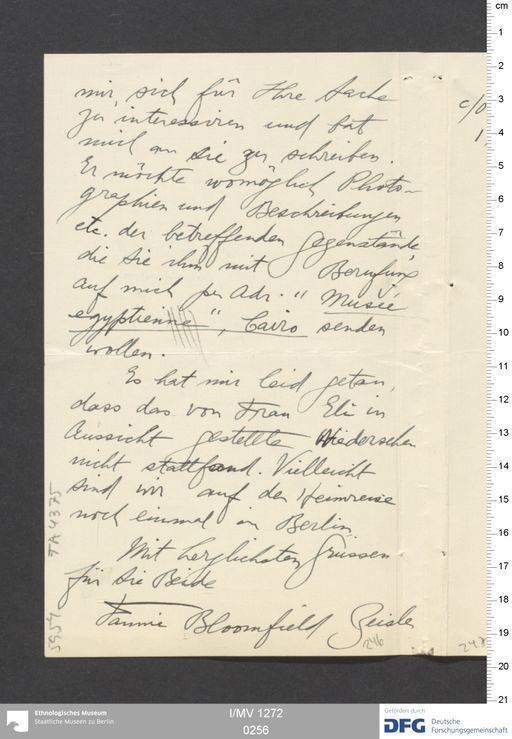 mir, sich für Ihre Sache
zu interessiren und bat
mich an Sie zu schreiben.
Er möchte womöglich Photo-
graphien und Beschreibungen
etc. der betreffenden Gegenstände,
die Sie ihm mit Berufung
auf mich per Adr. "Musée
egyptienne", Cairo senden
wollen.
Es hat mir leid getan,
dass das von Frau Eli in
Aussicht gestellte Wiedersehen
nicht stattfand. Vielleicht
sind wir auf der Heimreise
noch einmal in Berlin.
Mit herzlichsten Grüssen
für Sie Beide
Fannie Bloomfield Zeisler
246
247
c/o
1
TA 4375
5957
cm
1
2
3
4
5
6
7
8
9
10
11
12
13
14
15
16
17
18
19
20
21
Ethnologisches Museum
Staatliche Museen zu Berlin
I/MV 1272
0256
Gefördert durch
DFG Deutsche
Forschungsgemeinschaft